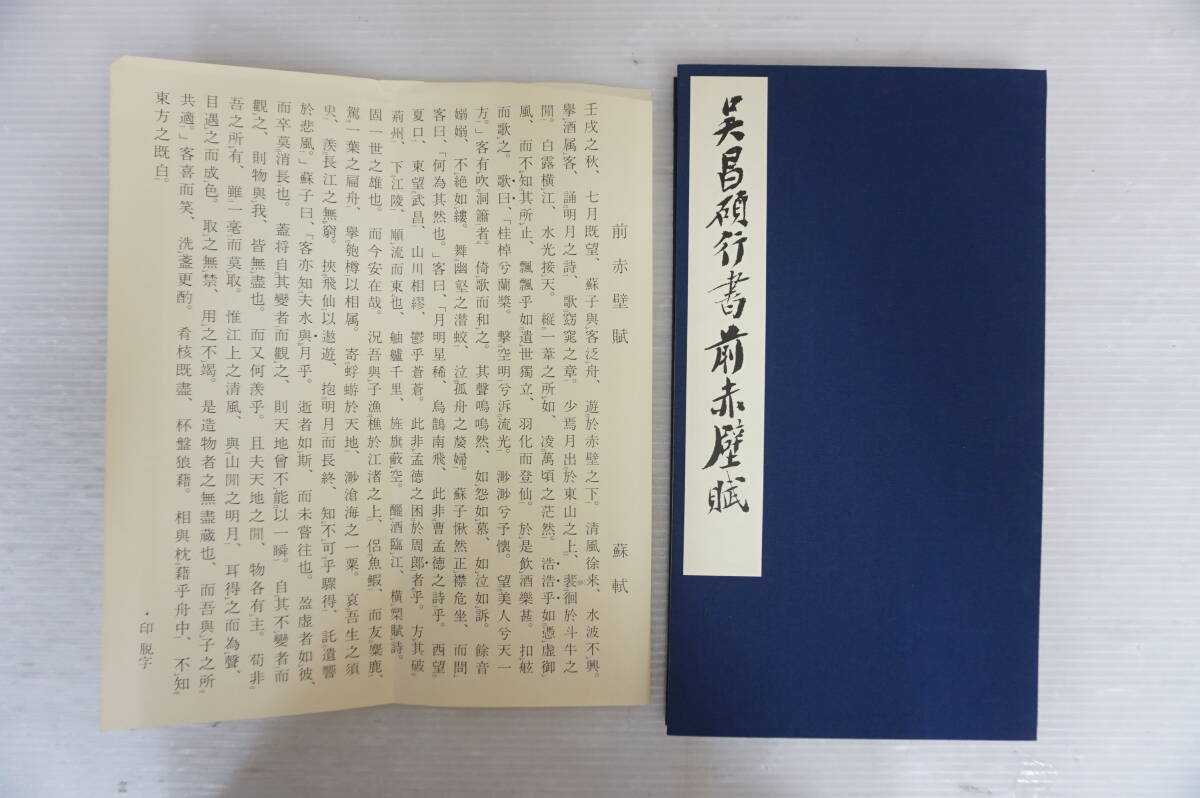 前赤壁賦　蘇軾
壬戌之秋、七月既望、蘇子與客泛舟、遊於赤壁之下。清風徐来、水波不興。
擧酒属客、誦明月之詩、歌窈窕之章。少焉月出於東山之上、裴徊於斗牛之
閒。白露横江、水光接天。縦一葦之所如、凌萬頃之茫然。浩浩乎如憑虚御
風、而不知其所止、飄飄乎如遺世獨立、羽化而登仙。於是飲酒樂甚。扣舷
而歌之。歌曰、「桂棹兮蘭槳。撃空明兮泝流光。渺渺兮予懐。望美人兮天一
方。」客有吹洞簫者。倚歌而和之。其聲嗚嗚然、如怨如慕、如泣如訴。餘音
嫋嫋、不絶如縷。舞幽壑之潜蛟、泣孤舟之嫠婦。蘇子愀然正襟危坐、而問
客曰、「何為其然也。」客曰、「月明星稀、烏鵲南飛、此非曹孟德之詩乎。西望
夏口、東望武昌、山川相繆、鬱乎蒼蒼。此非孟德之困於周郎者乎。方其破
荊州、下江陵、順流而東也、舳艫千里、旌旗蔽空。釃酒臨江、横槊賦詩。
固一世之雄也。而今安在哉。況吾與子漁樵於江渚之上、侶魚鰕、而友麋鹿、
駕一葉之扁舟、擧匏樽以相属。寄蜉蝣於天地、渺滄海之一粟。哀吾生之須
臾、羨長江之無窮。挾飛仙以遨遊、抱明月而長終、知不可乎驟得、託遺響
於悲風。」蘇子曰、「客亦知夫水與月乎。逝者如斯、而未嘗往也。盈虚者如彼、
而卒莫消長也。蓋将自其變者而觀之、則天地曾不能以一瞬。自其不變者而
觀之、則物與我、皆無盡也。而又何羨乎。且夫天地之閒、物各有主。苟非
吾之所有、雖一毫而莫取。惟江上之清風、與山閒之明月、耳得之而為聲、
目遇之而成色。取之無禁、用之不竭。是造物者之無盡蔵也、而吾與子之所
共適。」客喜而笑、洗盞更酌。肴核既盡、杯盤狼藉。相與枕藉乎舟中、不知
東方之既白。
・印 脱字
吳昌碩行書前赤壁賦